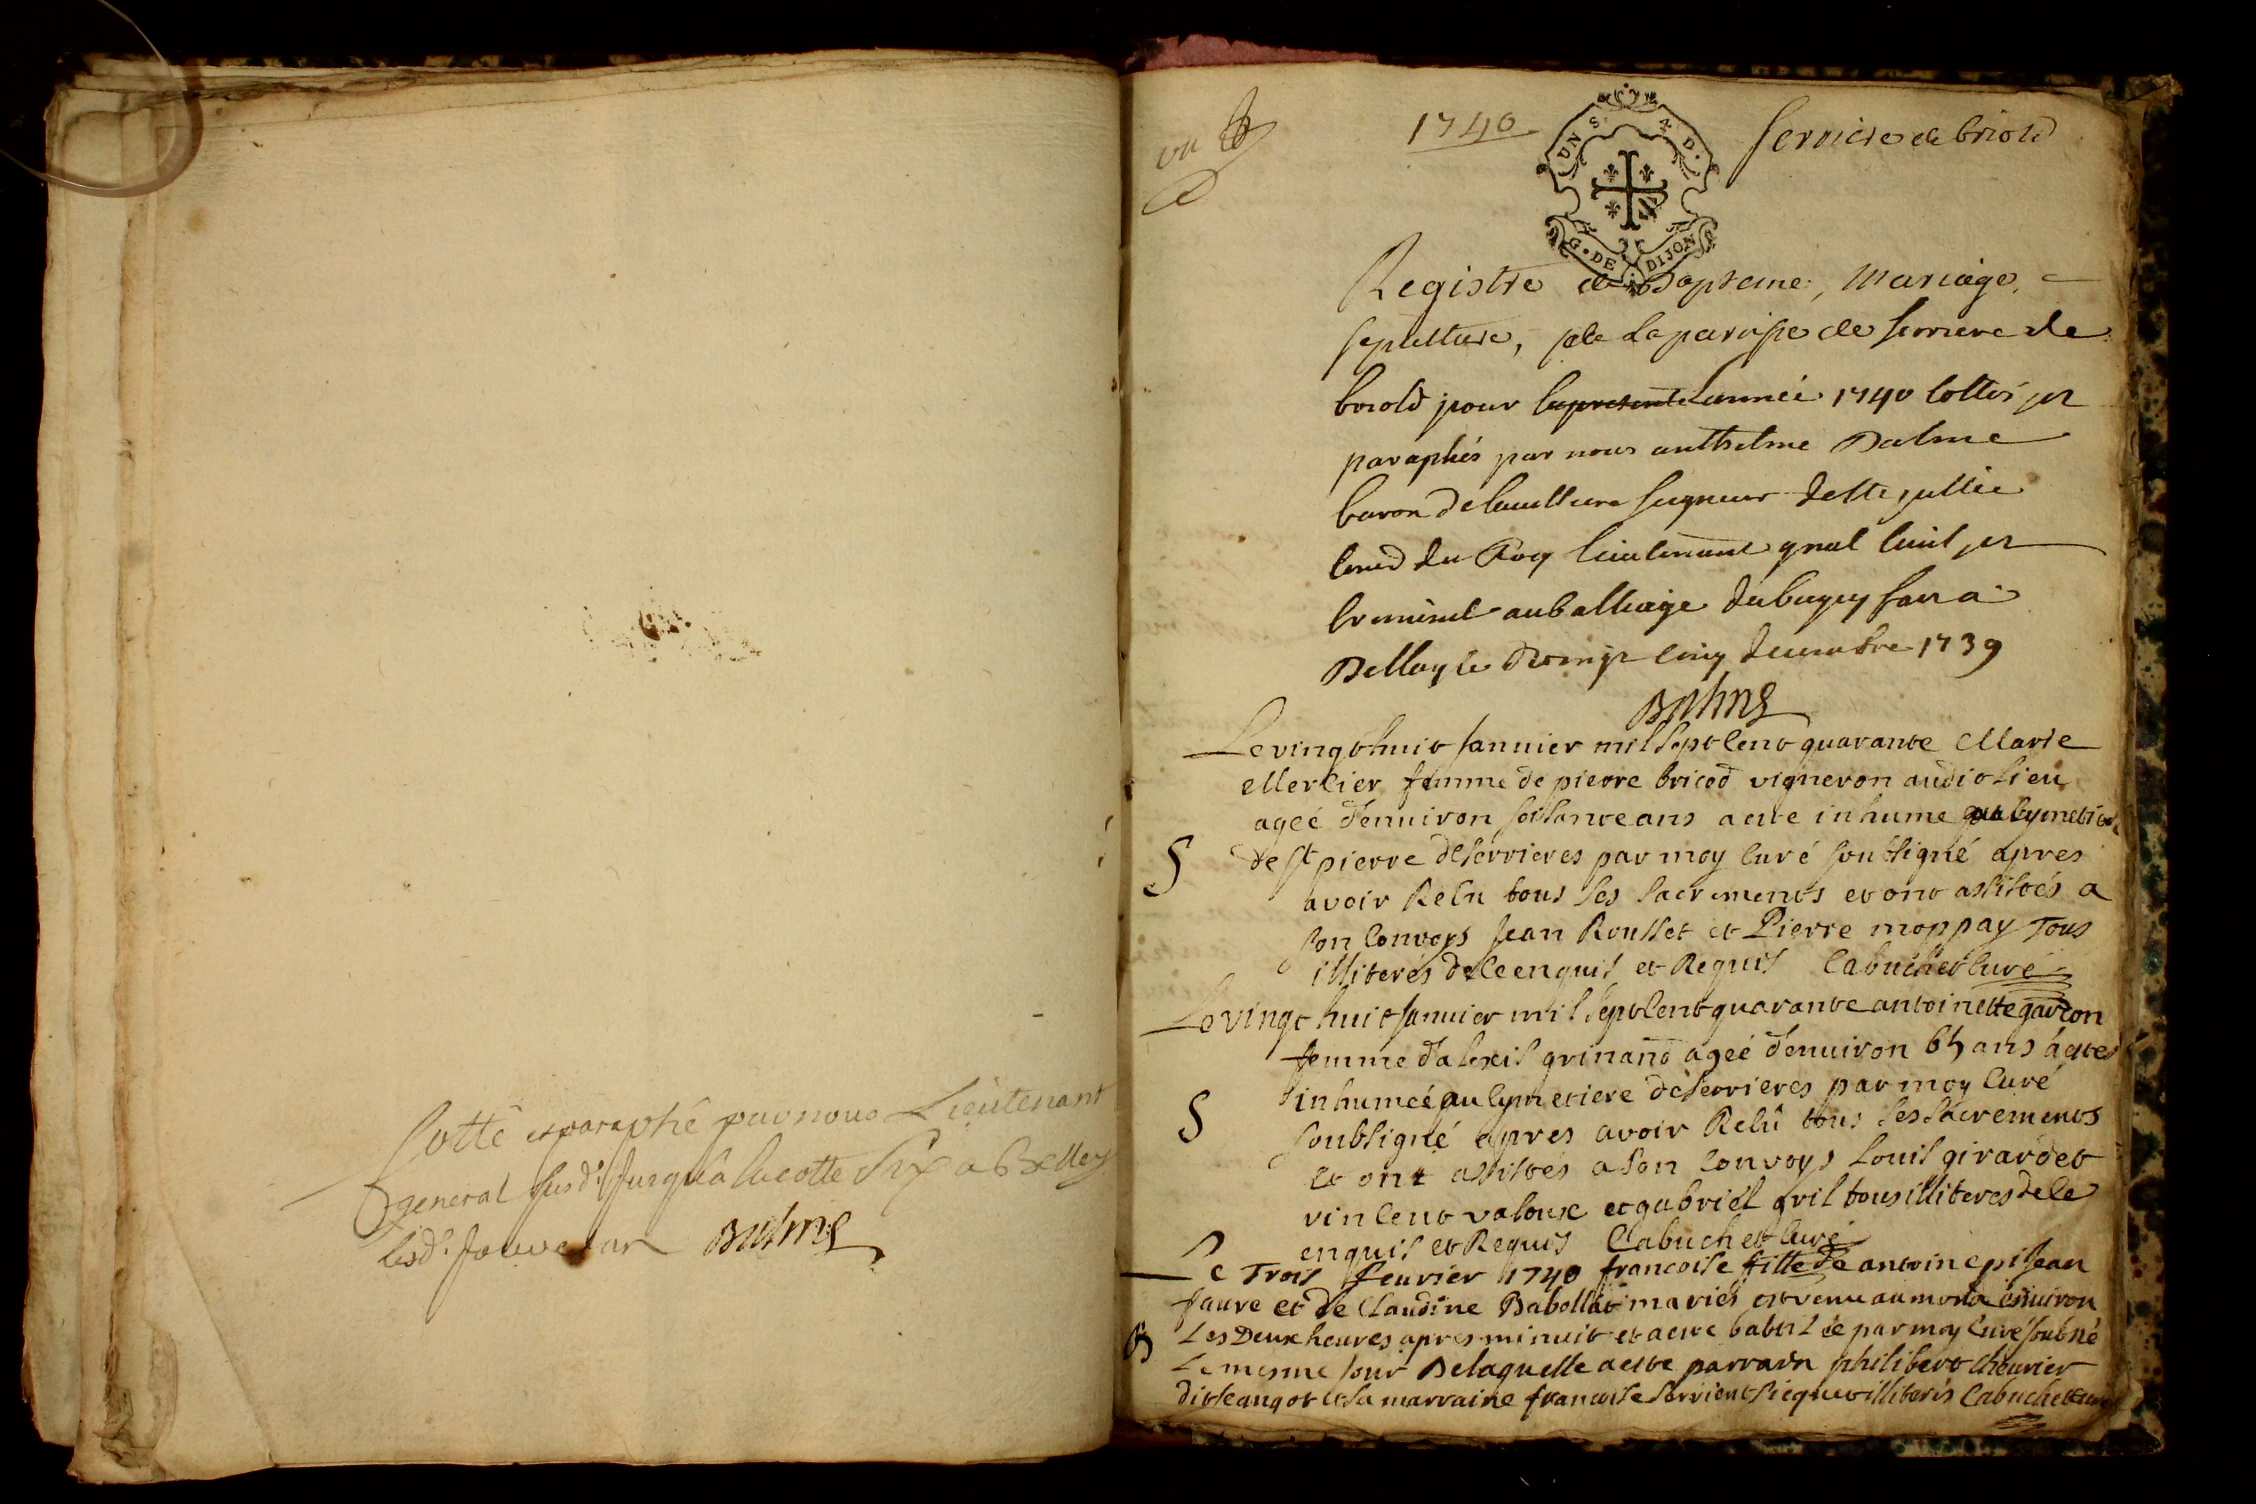 Cotté et paraphé par nous Lieutenant
general susd. jusqu'a la cotte Six a Belley
lesd. jour et an Balme
1740
Serriere de briord
UN S. 4 D.
G. DE DIJON
Registre de Bapteme, Mariage,
sepulture, de la paroisse de serriere de
briord pour la presente Lannéé 1740 Cottés et
paraphés par nous anthelme Balme
baron de seigneur de Ste jullie
Con.er du Roy lieutenant gnal Civil et
Criminel au balliage du bugey fait a
Belley le vingt cinq decembre 1739
Balme
Le vingt huit Janvier mil Sept Cent quarante Marie
Mercier femme de pierre bricod vigneron audit Lieu
ageé d'enuiron soisante ans a ete inhume au cymetiere
S
de St pierre de serrieres par moy Curé soubsigné apres
avoir Relu tous ses sacrements et ont assistés a
son Convoys Jean Rousset et Pierre moppay Tous
illiterés de ce enquis et Requis Cabuchet Curé
Le vingt huit Janvier mil Sept Cent quarante antoinette garcon
femme d'alexis grinand ageé d'enuiron 65 ans a eté
inhumeé au Cymetiere de serrieres par moy Curé
S
soubsigné apres avoir Relu tous ses sacrements
et ont assistés a son Convoys Louis girardet
vincent valoux et gabriel gril tous illiteres de ce
enquis et Requis Cabuchet Curé
Le Trois feurier 1740 francoise fille de antoine pisjean
faure et de Claudine Babollat mariés est venu au monde enuiron
B
Les Deux heures apres minuit et a ete batisée par moy Cure soubné
Le mesme Jour De laquelle a este parrain philibert cheurier
dit Langot et sa marraine francoise illiterés Cabuchet curé